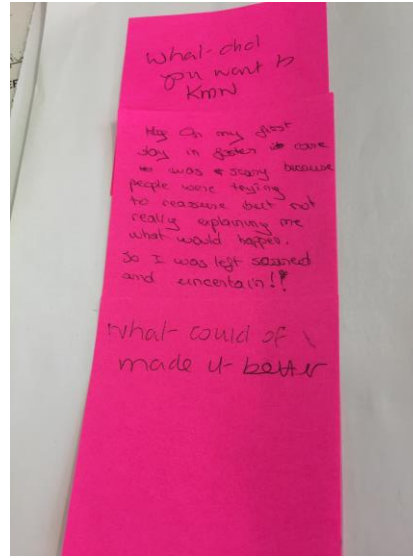 What did
you want to
know
On my first
day in foster care
was scary because
people were trying
to reasure but not
really explaining me
what would happen.
So I was left scared
and uncertain!!
What could of
made it better